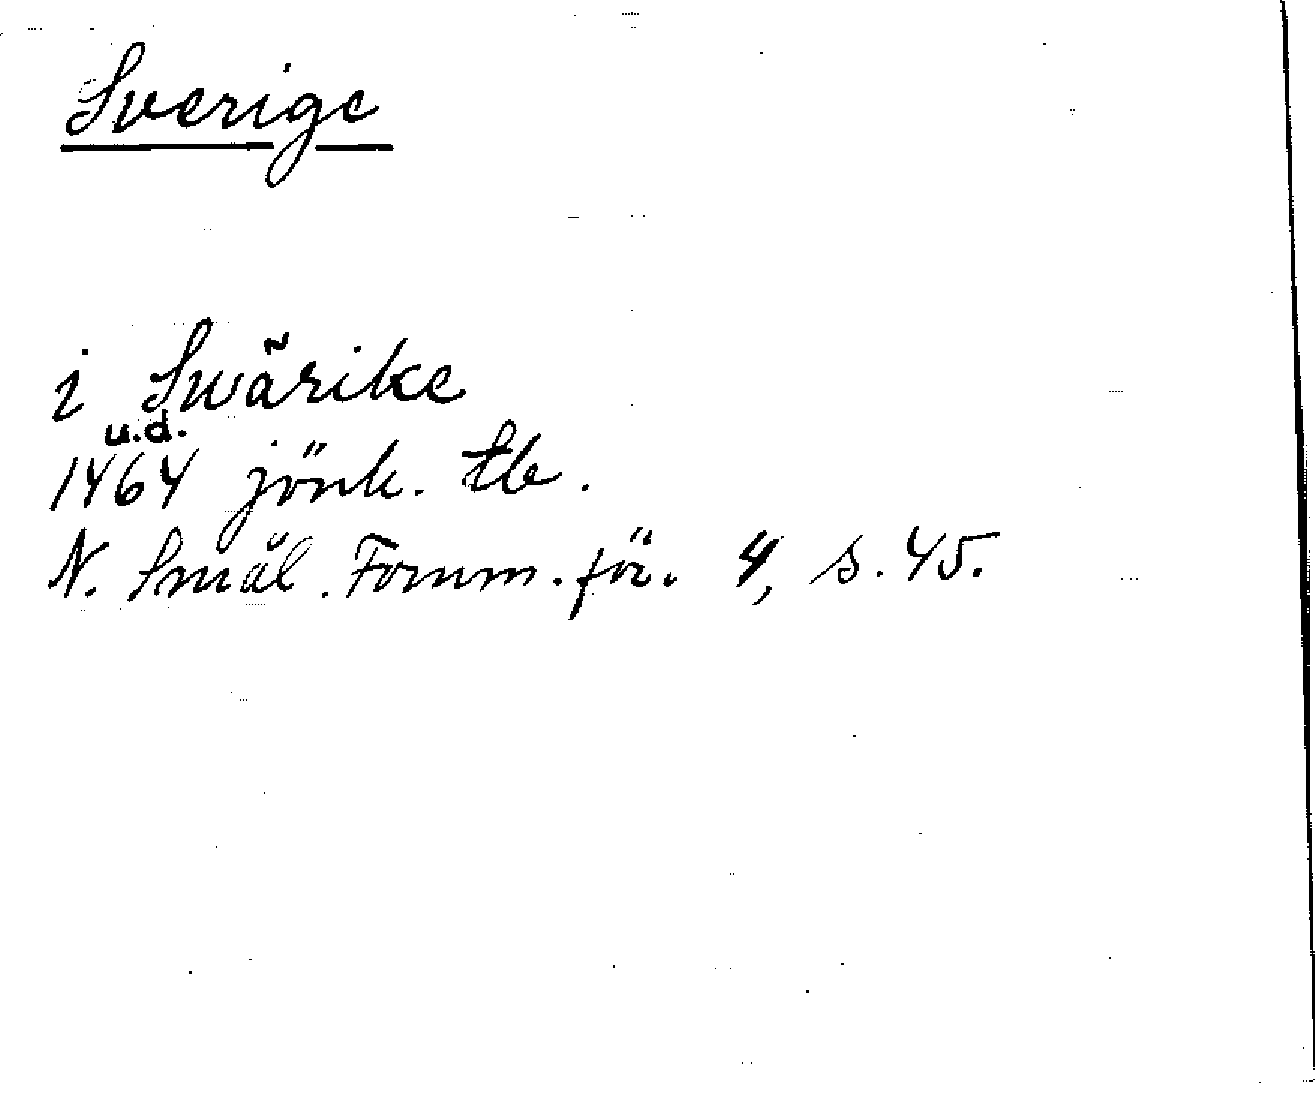 Sverige
i Swãrike
u.d.
1464 jönk. tb.
N. Smål. Fornm. för. 4, s. 45.